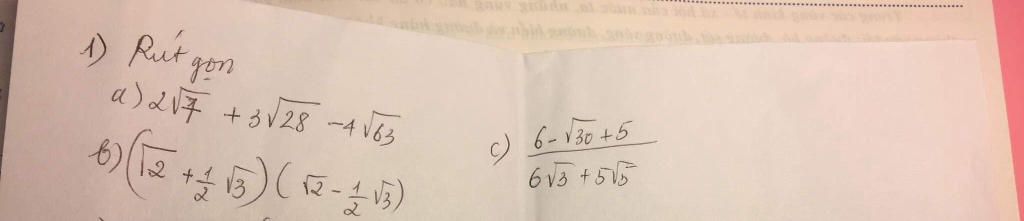 1) Rút gọn
a) 2√7 + 3√28 - 4√63
b) (√2 + 1/2 √3)(√2 - 1/2 √3)
c) (6 - √30 + 5)/(6√3 + 5√5)